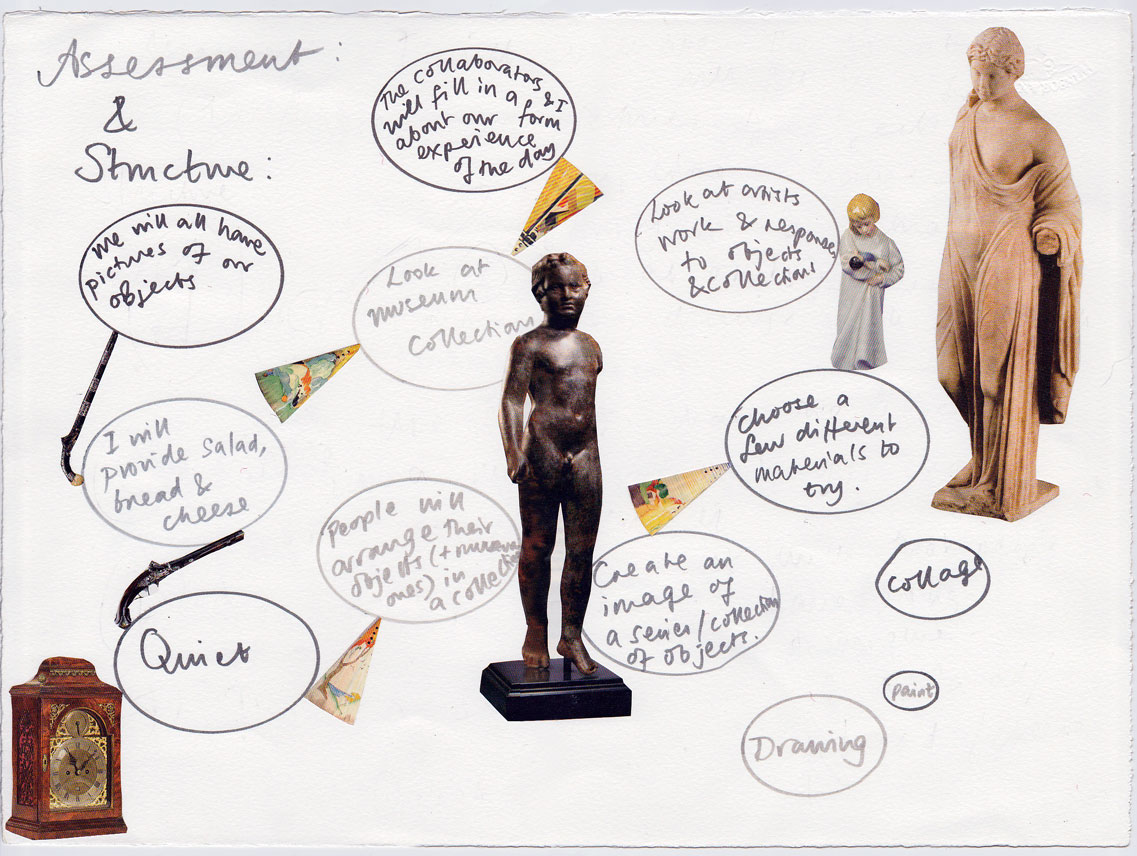 Assessment:
&
Structure:
The collaborators & I
will fill in a
about our form
experience
of the day
we will all have
pictures of our
objects
Look at
museum
collections
Look at artists
work & responses
to objects
& collections
I will
provide salad,
bread &
cheese
choose a
few different
materials to
try.
People will
arrange their
objects (+ museum
ones) in
a collection
Create an
image of
a series/collection
of objects.
Collage
Quiet
paint
Drawing